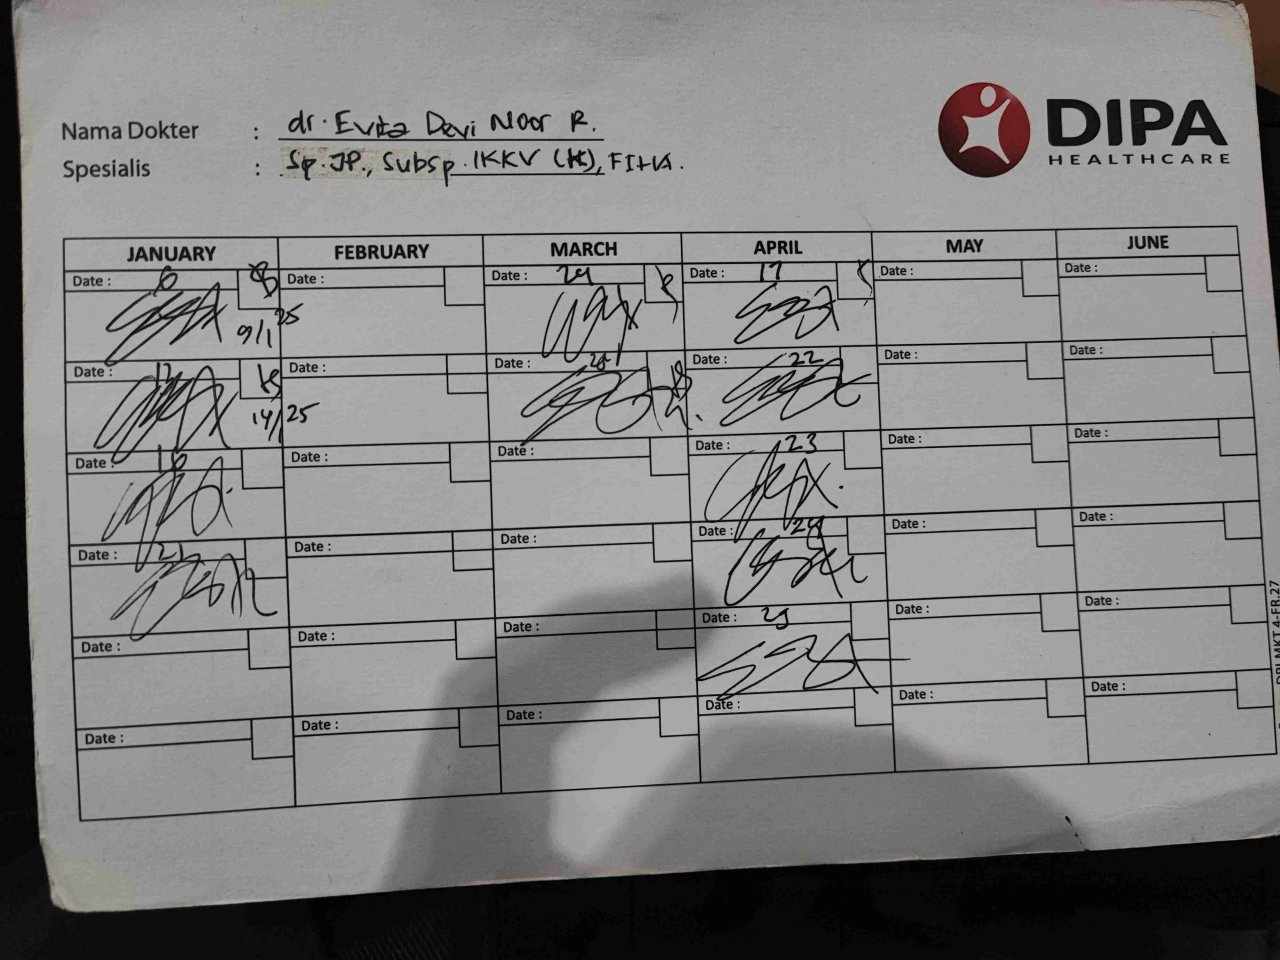 Nama Dokter : dr. Evita Devi Noor R.
Spesialis : Sp.JP., Subsp. IKKV (K), FIHA.
DIPA
HEALTHCARE
JANUARY FEBRUARY MARCH APRIL MAY JUNE
Date : 6 Date : Date : 24 Date : 17 Date : Date :
9/1 25
Date : 13 Date : Date : Date : 22 Date : Date :
14/ 25
Date : 16 Date : Date : Date : 23 Date : Date :
Date : 21 Date : Date : Date : 24 Date : Date :
Date : Date : Date : Date : 29 Date : Date :
Date : Date : Date : Date : Date : Date :